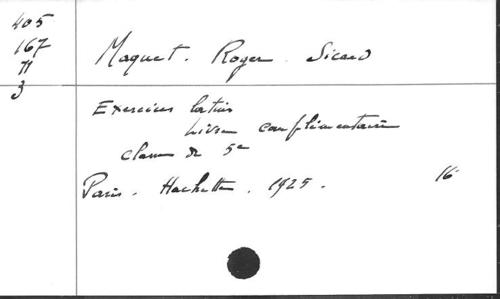 405
167
71
3
Maquet. Roger. Sicard
Exercices latins
Livre complimentaire
classe de 5e
Paris. Hachette. 1925. 16